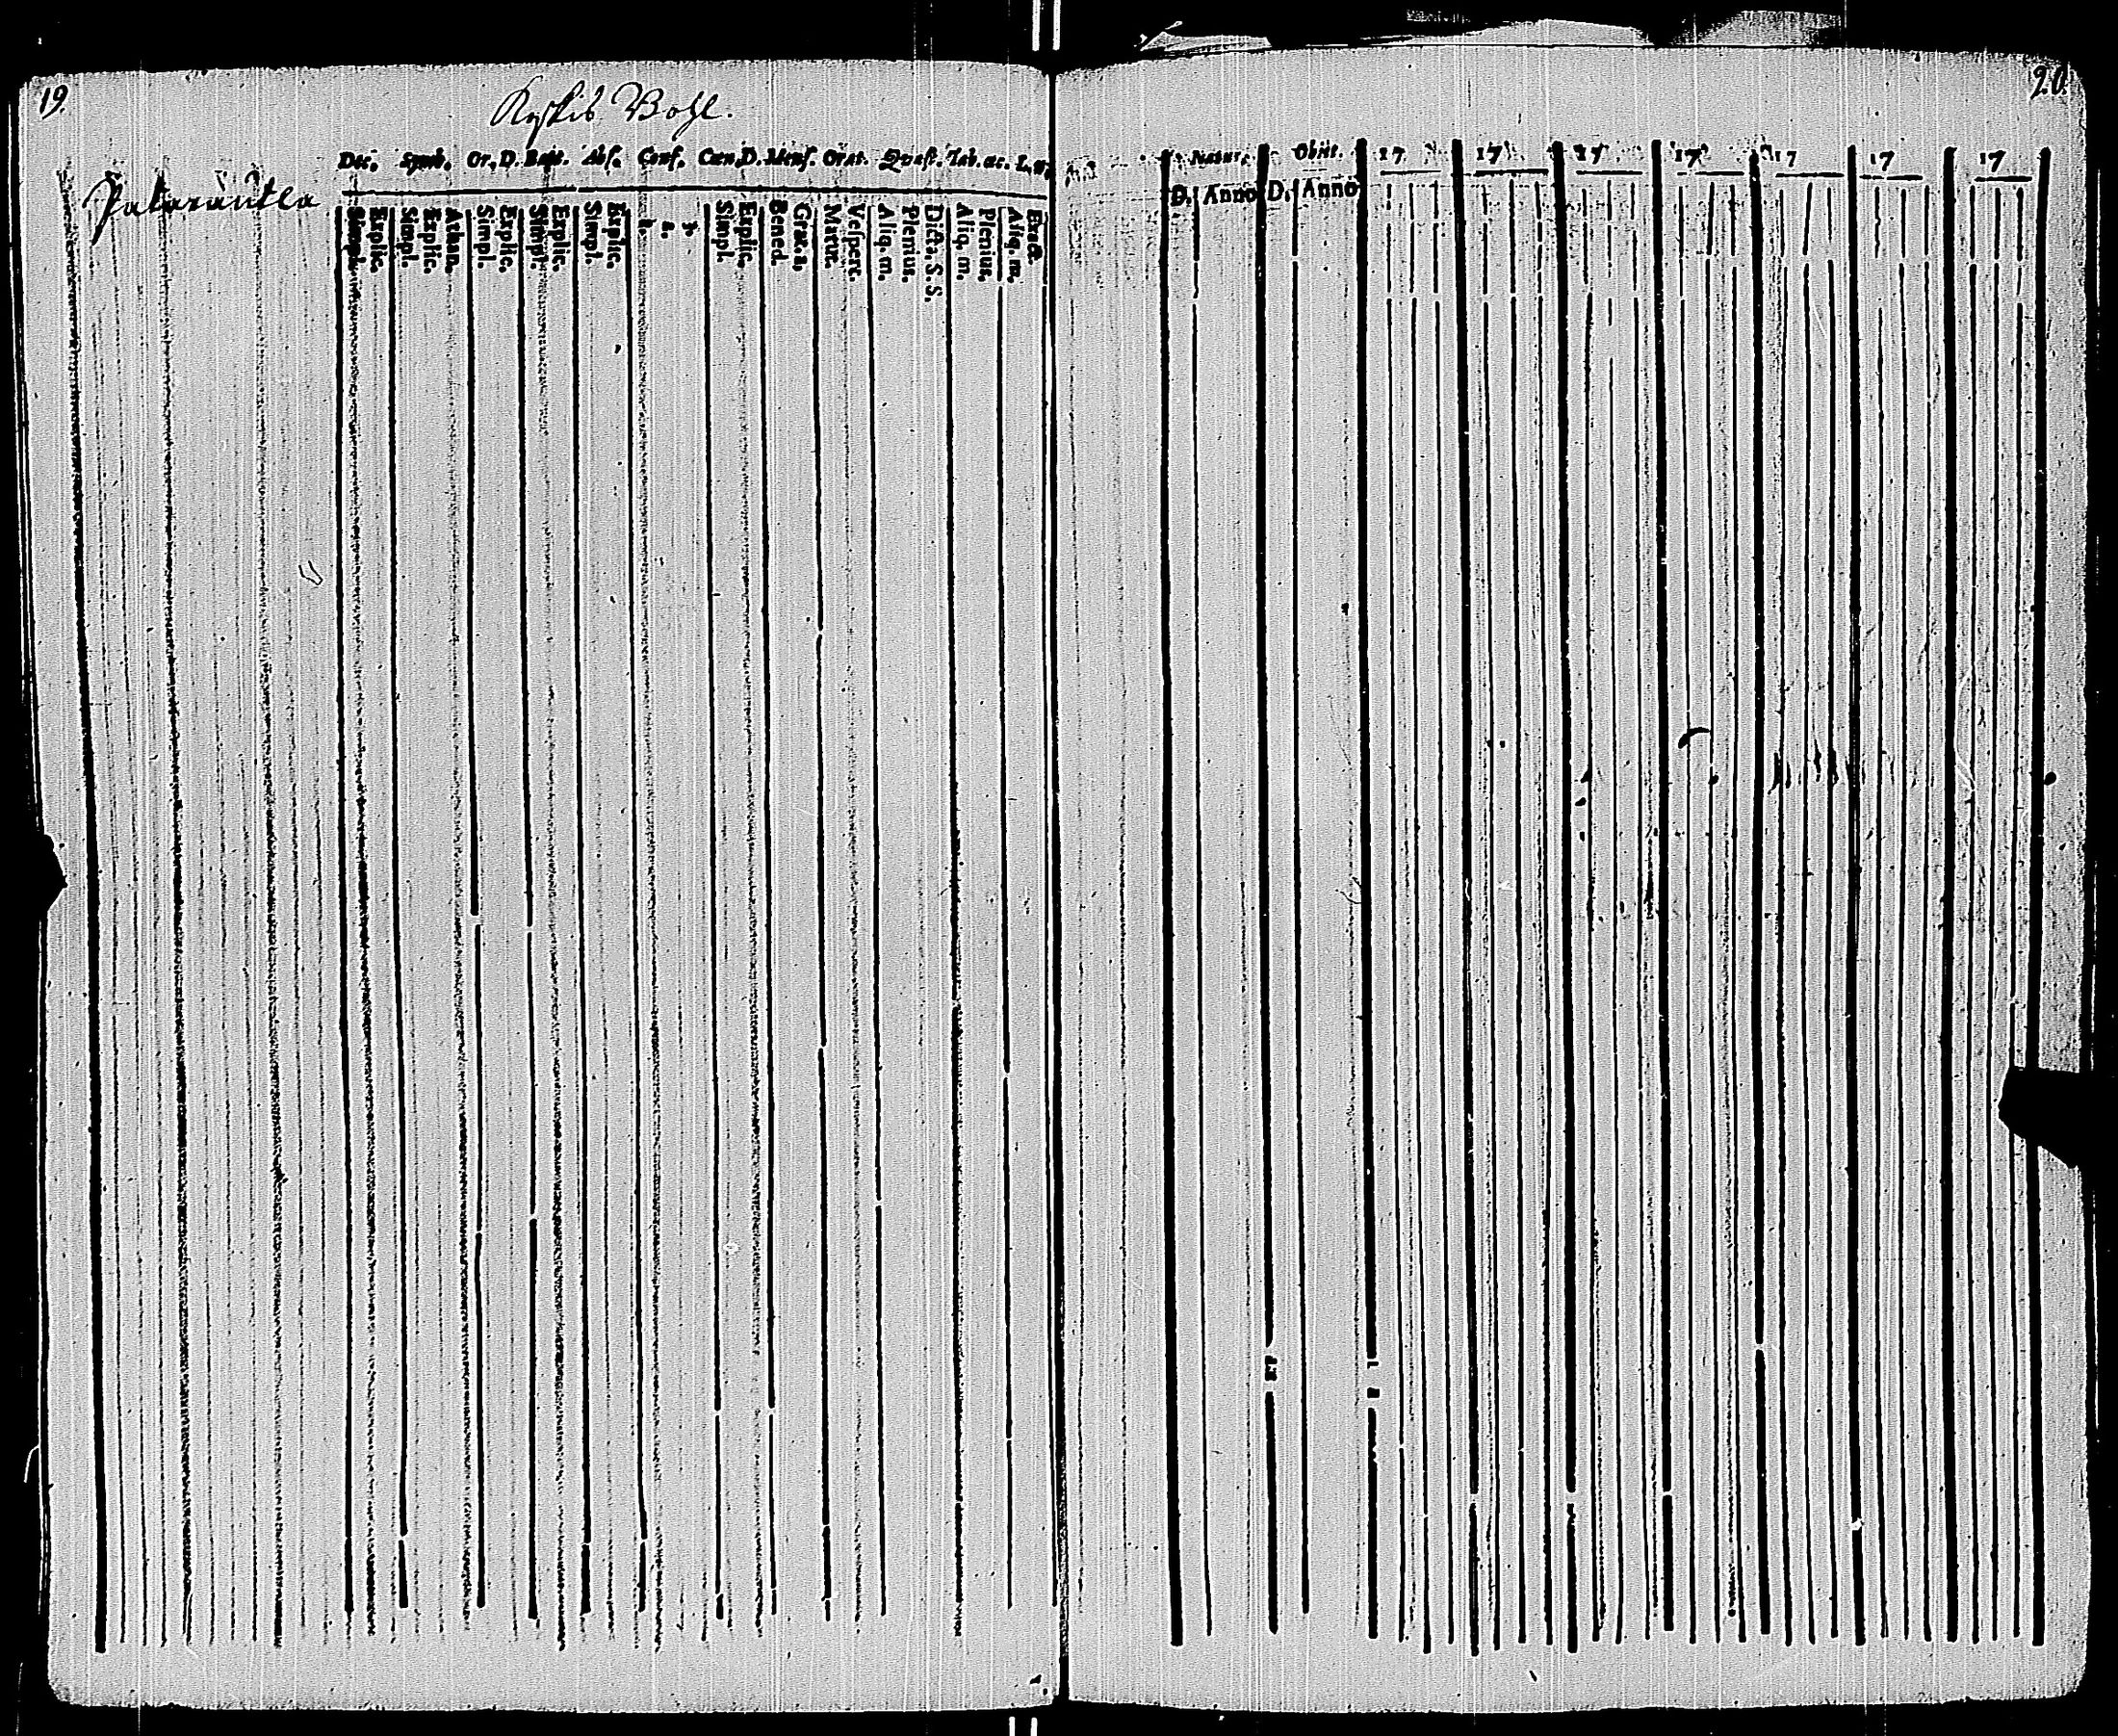 19.
Kyrkio Bohl.
Dec. Symb. Or. D. Bapt. Abs. Conf. Cœn. D. Mens. Orat. Quæst. Tab. œc. L. n.
Simpl. Explic. Simpl. Explic. Athan. Simpl. Explic. Simpl. Explic. Simpl. Explic. 1. 2. 3. Simpl. Explic. Bened. Grat. a. Matut. Vespert. Aliq. m. Plenius. Dict. S. S. Aliq. m. Plenius. Aliq. m. Exacte
20.
Natur. Obiit. 17 17 17 17 17 17 17
D. Anno D. Anno